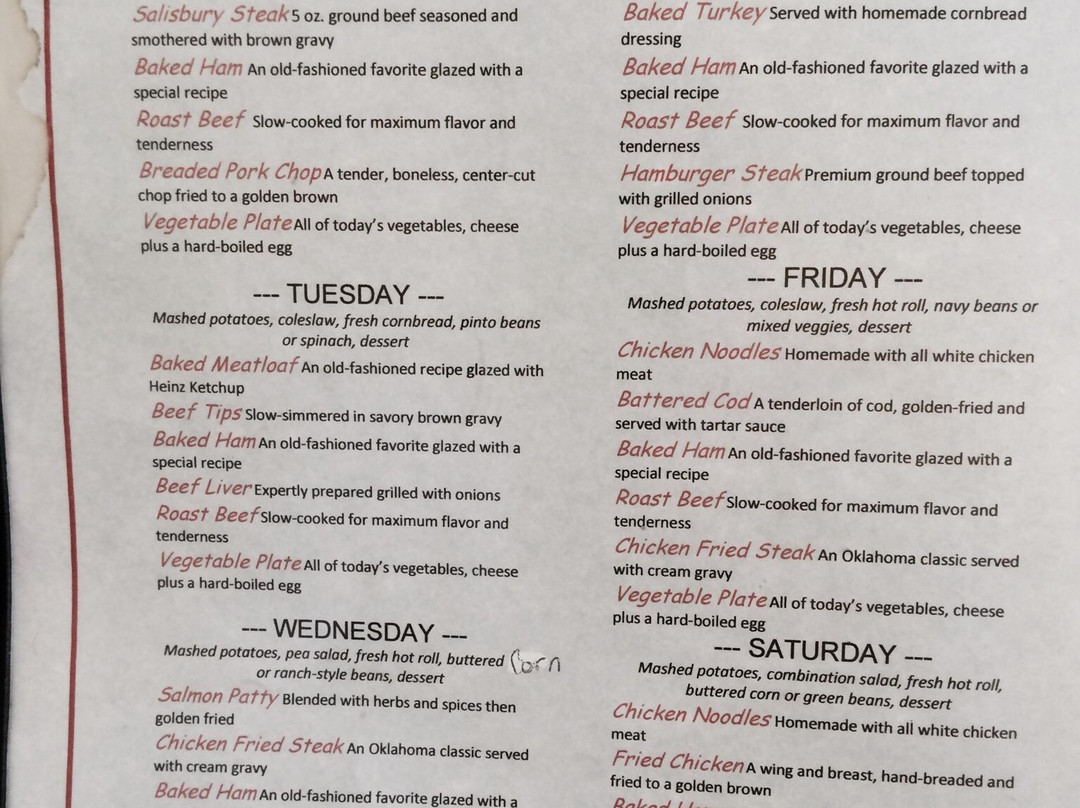 Salisbury Steak 5 oz. ground beef seasoned and
smothered with brown gravy
Baked Ham An old-fashioned favorite glazed with a
special recipe
Roast Beef Slow-cooked for maximum flavor and
tenderness
Breaded Pork Chop A tender, boneless, center-cut
chop fried to a golden brown
Vegetable Plate All of today's vegetables, cheese
plus a hard-boiled egg
--- TUESDAY ---
Mashed potatoes, coleslaw, fresh cornbread, pinto beans
or spinach, dessert
Baked Meatloaf An old-fashioned recipe glazed with
Heinz Ketchup
Beef Tips Slow-simmered in savory brown gravy
Baked Ham An old-fashioned favorite glazed with a
special recipe
Beef Liver Expertly prepared grilled with onions
Roast Beef Slow-cooked for maximum flavor and
tenderness
Vegetable Plate All of today's vegetables, cheese
plus a hard-boiled egg
--- WEDNESDAY ---
Mashed potatoes, pea salad, fresh hot roll, buttered Corn
or ranch-style beans, dessert
Salmon Patty Blended with herbs and spices then
golden fried
Chicken Fried Steak An Oklahoma classic served
with cream gravy
Baked Ham An old-fashioned favorite glazed with a
Baked Turkey Served with homemade cornbread
dressing
Baked Ham An old-fashioned favorite glazed with a
special recipe
Roast Beef Slow-cooked for maximum flavor and
tenderness
Hamburger Steak Premium ground beef topped
with grilled onions
Vegetable Plate All of today's vegetables, cheese
plus a hard-boiled egg
--- FRIDAY ---
Mashed potatoes, coleslaw, fresh hot roll, navy beans or
mixed veggies, dessert
Chicken Noodles Homemade with all white chicken
meat
Battered Cod A tenderloin of cod, golden-fried and
served with tartar sauce
Baked Ham An old-fashioned favorite glazed with a
special recipe
Roast Beef Slow-cooked for maximum flavor and
tenderness
Chicken Fried Steak An Oklahoma classic served
with cream gravy
Vegetable Plate All of today's vegetables, cheese
plus a hard-boiled egg
--- SATURDAY ---
Mashed potatoes, combination salad, fresh hot roll,
buttered corn or green beans, dessert
Chicken Noodles Homemade with all white chicken
meat
Fried Chicken A wing and breast, hand-breaded and
fried to a golden brown